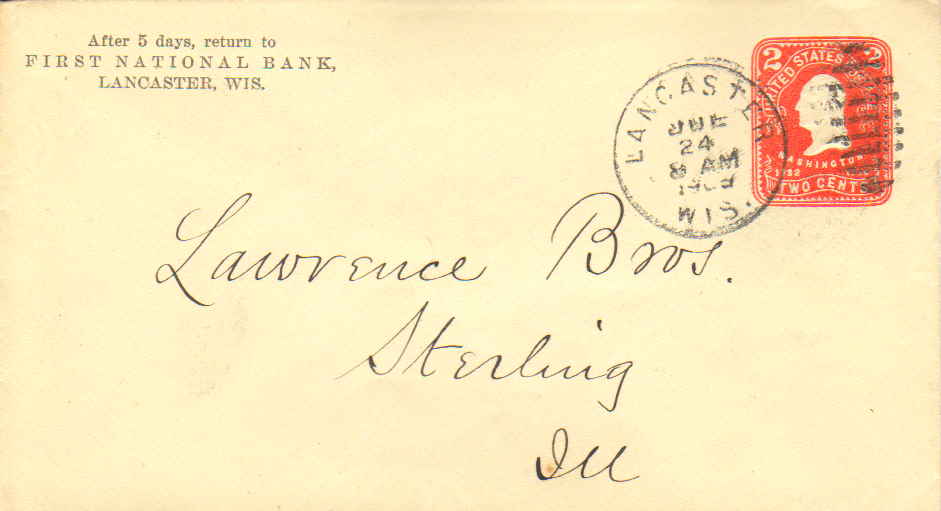 After 5 days, return to
FIRST NATIONAL BANK,
LANCASTER, WIS.
LANCASTER
24
8 AM
WIS.
2 2
UNITED STATES
WASHINGTON
1732
TWO CENTS
Lawrence Bros.
Sterling
Ill